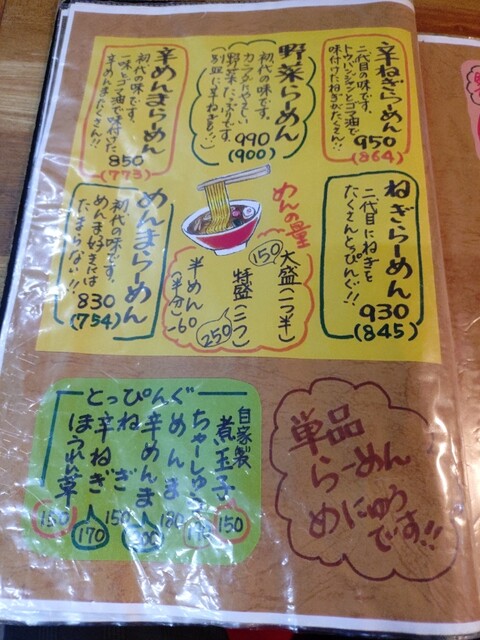 辛ねぎらーめん
二代目の味です。
トウバンジャンとゴマ油で
味付けたねぎがたくさん!!
950
(864)
野菜らーめん
初代の味です。
カラダにやさしい
野菜たっぷりです。
990
(900)
辛めんまらーめん
初代の味です。
一味とゴマ油で味付けた
辛めんまたくさん!!
850
(773)
ねぎらーめん
二代目にねぎを
たくさんとっぴんぐ!!
930
(845)
めんの量
大盛(一つ半)
150
特盛(二つ)
250
半めん
(半分)-60
めんまらーめん
初代の味です。
めんま好きには
たまらない!!
830
(754)
とっぴんぐ
自家製
煮玉子
150
ちゃーしゅう
めんま
180
辛めんま
200
ねぎ
150
辛ねぎ
170
ほうれん草
150
単品
らーめん
めにゅう
です!!